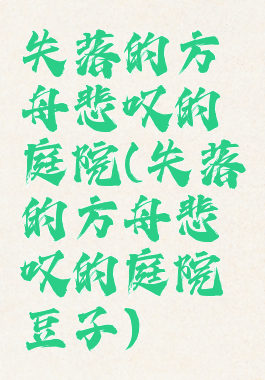 失落的方
舟悲叹的
庭院(失落
的方舟悲
叹的庭院
豆子)